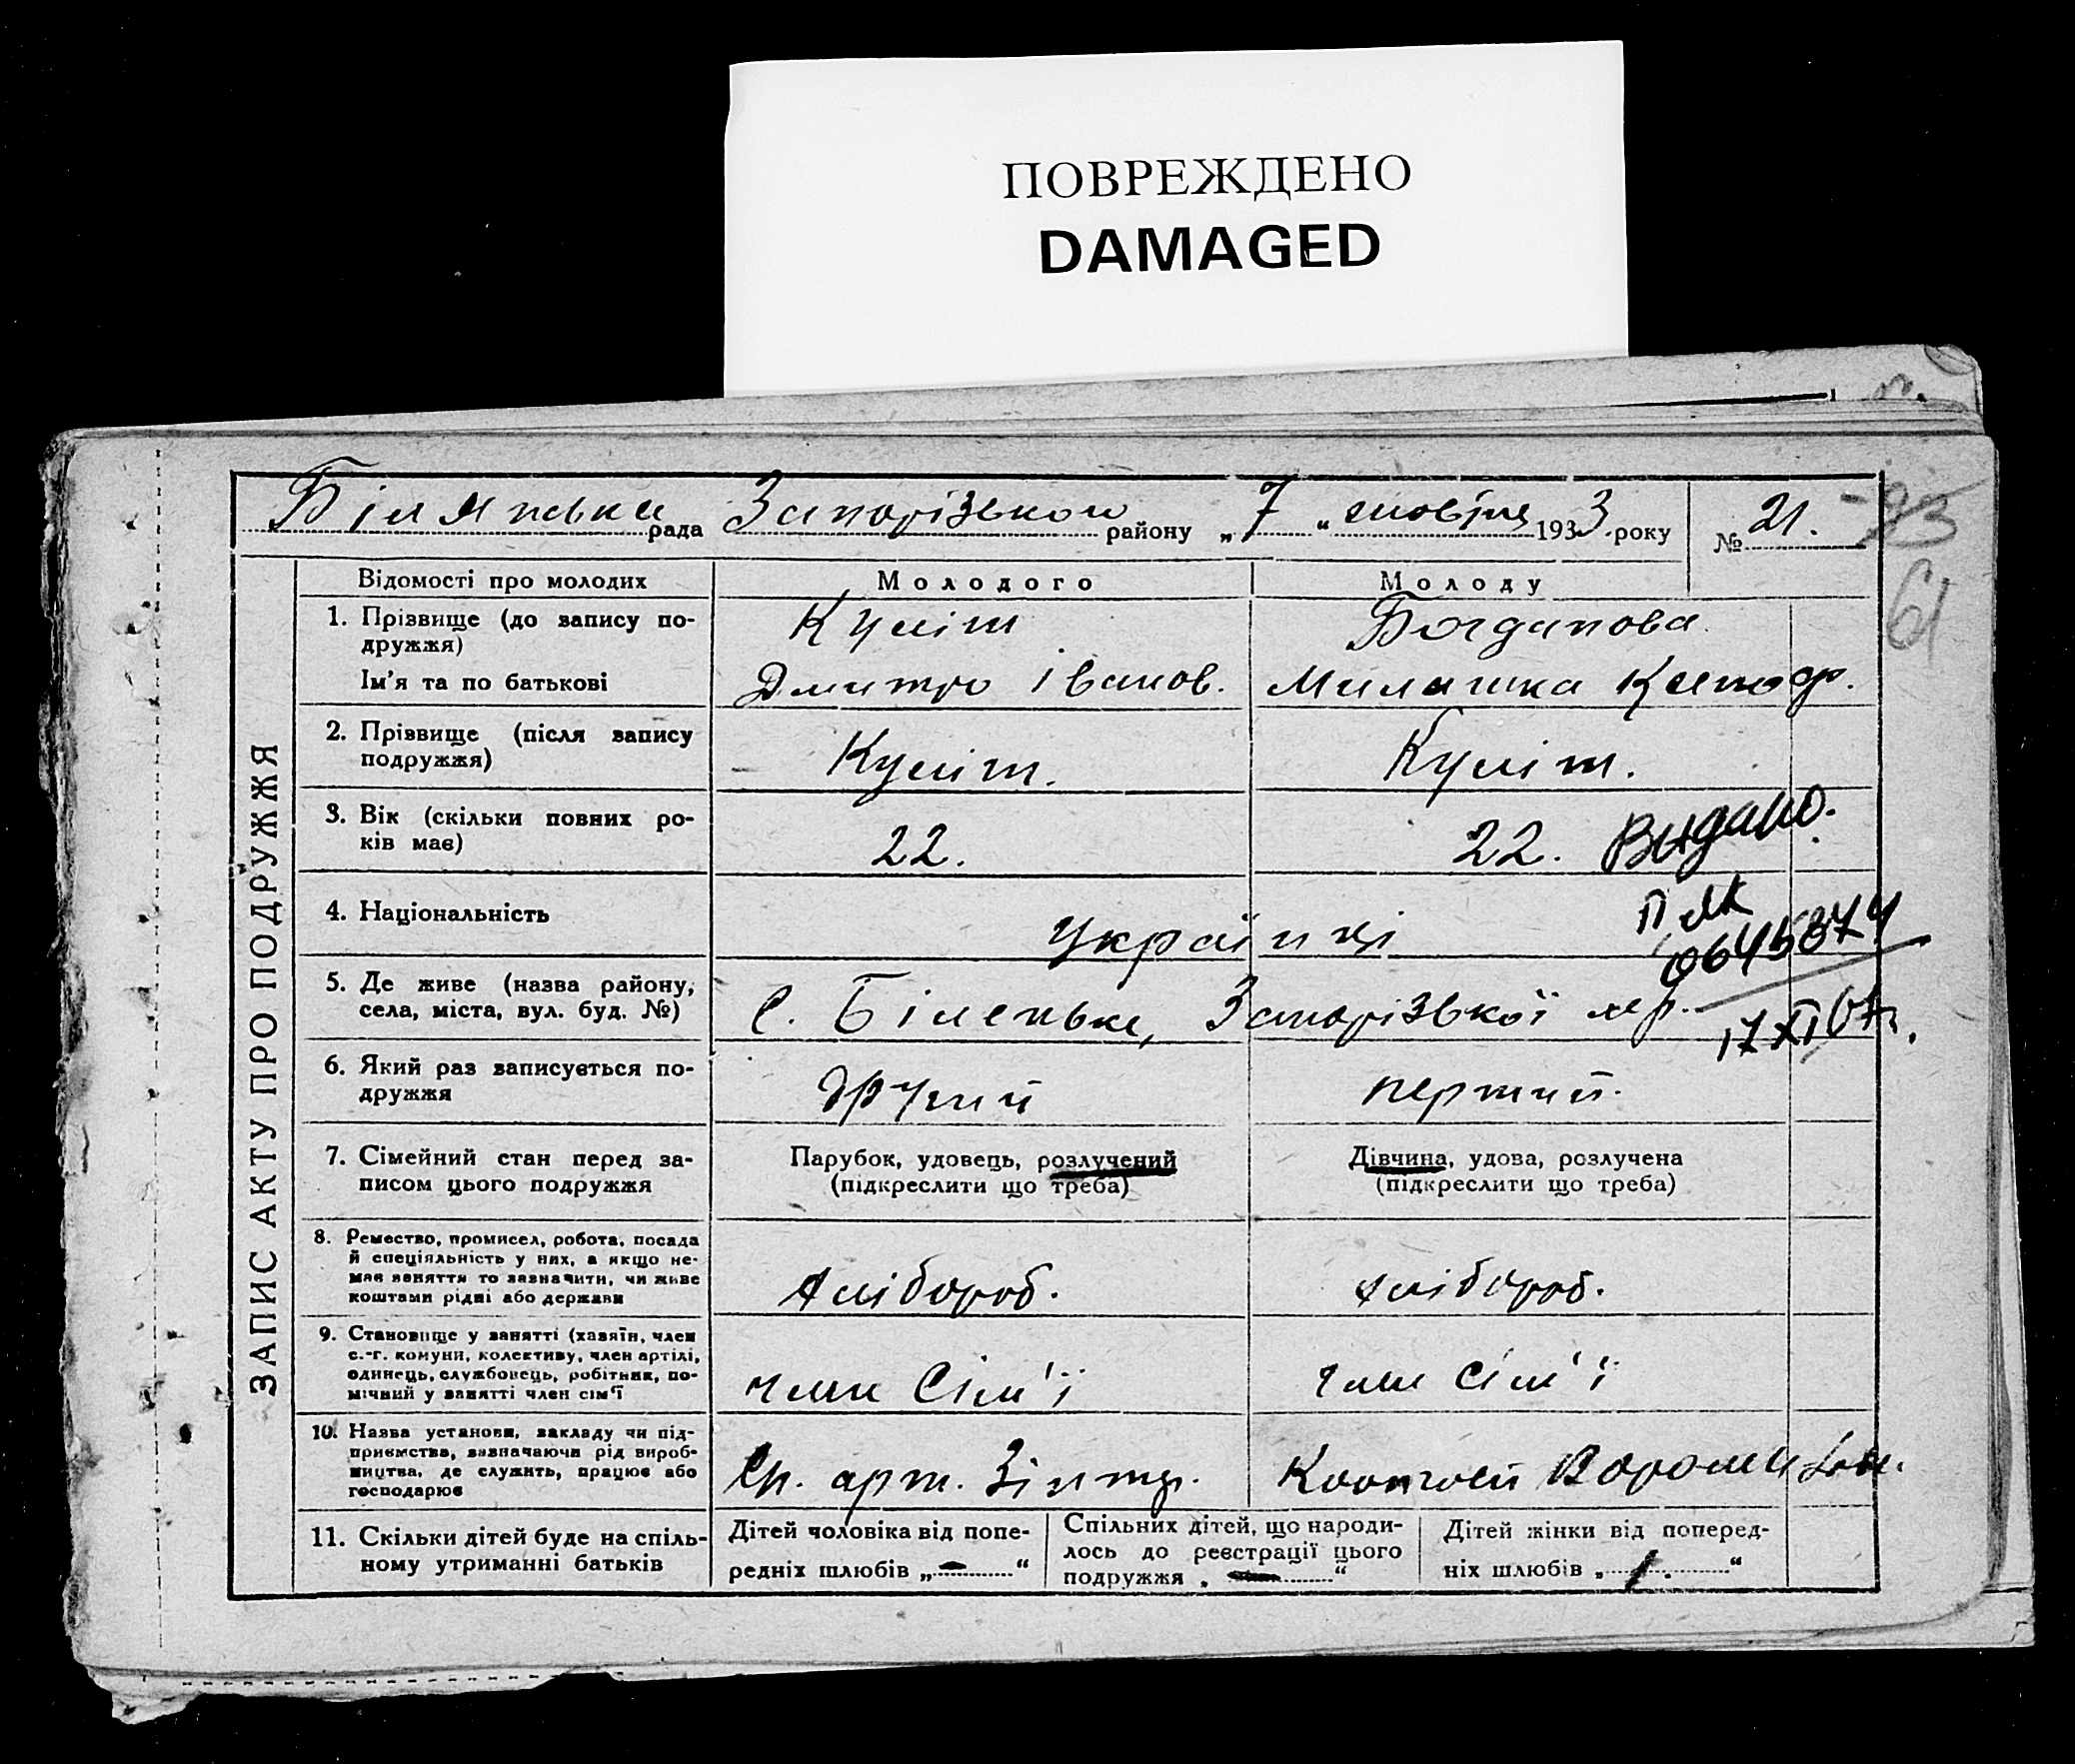 ПОВРЕЖДЕНО
DAMAGED
рада Запорізького району „ 7 “ жовтня 1933 року № 21.
61
ЗАПИС АКТУ ПРО ПОДРУЖЖЯ
Відомості про молодих Молодого Молоду
1. Прізвище (до запису по- Куліш Богданова
дружжя)
Ім'я та по батькові Дмитро Іванов.
2. Прізвище (після запису Куліш. Куліш.
подружжя)
3. Вік (скільки повних ро- 22. 22. Видано.
ків має)
4. Національність Українці
5. Де живе (назва району, с. Біленьке, Запорізької
села, міста, вул. буд. №)
6. Який раз записується по- другий перший.
дружжя
7. Сімейний стан перед за- Парубок, удовець, розлучений Дівчина, удова, розлучена
писом цього подружжя (підкреслити що треба) (підкреслити що треба)
8. Ремество, промисел, робота, посада хлібороб. хлібороб.
й спеціяльність у них, а якщо не-
має заняття то зазначити, чи живе
коштами рідні або держави
9. Становище у занятті (хазяїн, член член сім'ї член сім'ї
с.-г. комуни, колективу, член артілі,
одинець, службовець, робітник, по-
мічний у занятті член сім'ї
10. Назва установи, закладу чи під-
приємства, зазначаючи рід вироб-
ництва, де служить, працює або
господарює
11. Скільки дітей буде на спіль- Дітей чоловіка від попе- Спільних дітей, що народи- Дітей жінки від поперед-
ному утриманні батьків редніх шлюбів „ — “ лось до реєстрації цього ніх шлюбів „ 1. “
подружжя „ — “